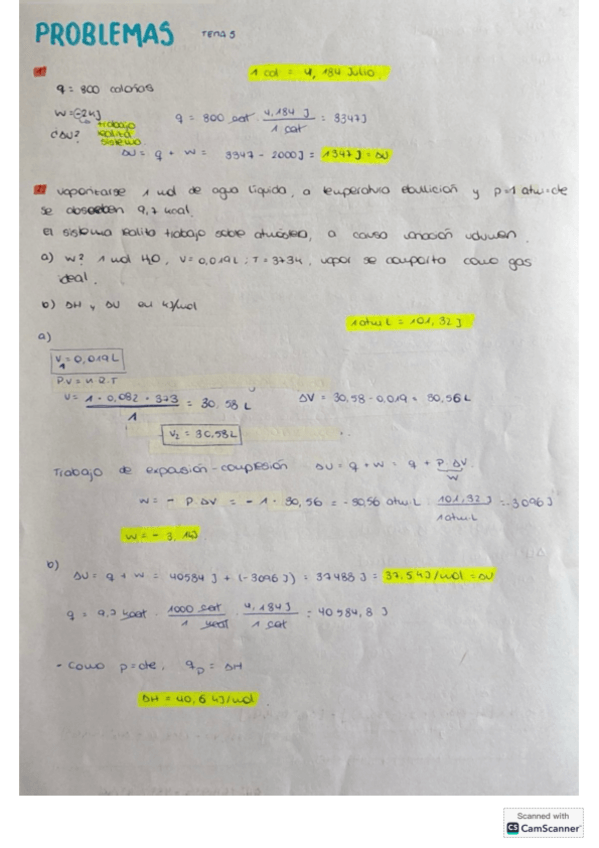 PROBLEMAS TEMA 5
1. 1 cal = 4,184 Julio.
q = 800 calorías
w = -2kJ trabajo
q = 800 cal · 4,184 J / 1 cal = 3347J
dΔU? realiza
sistema.
ΔU = q + w = 3347 - 2000J = 1347J = ΔU
vaporizarse 1 mol de agua líquida, a temperatura ebullición y p=1 atm=cte
se absorben 9,7 kcal.
El sistema realiza trabajo sobre atmósfera, a causa variación volumen.
a) w? 1 mol H2O, V = 0,019L ; T = 373K, vapor se comporta como gas
ideal.
b) ΔH y ΔU en kJ/mol
1 atm L = 101,32 J
a)
V1 = 0,019L
P.V = n.R.T
V = 1 · 0,082 · 373 / 1 = 30,58 L
ΔV = 30,58 - 0,019 = 30,56 L
V2 = 30,58L
Trabajo de expansión-compresión ΔU = q + w = q + P ΔV
w
w = - P ΔV = - 1 · 30,56 = - 30,56 atm·L · 101,32 J / 1 atm·L = -3096 J
w = - 3,1kJ
b)
ΔU = q + w = 40584 J + (-3096 J) = 37488 J = 37,5 kJ/mol = ΔU
q = 9,7 kcal · 1000 cal / 1 kcal · 4,184 J / 1 cal = 40584,8 J
- Como p=cte, qp = ΔH
ΔH = 40,6 kJ/mol
Scanned with
CS CamScanner